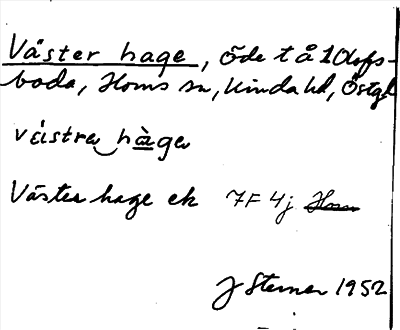 Väster hage, öde t å 1 Olofs-
boda, Horns sn, Kinda hd, Östgl
västra hàga
Väster hage ek 7F 4j Horn
J Sterner 1952